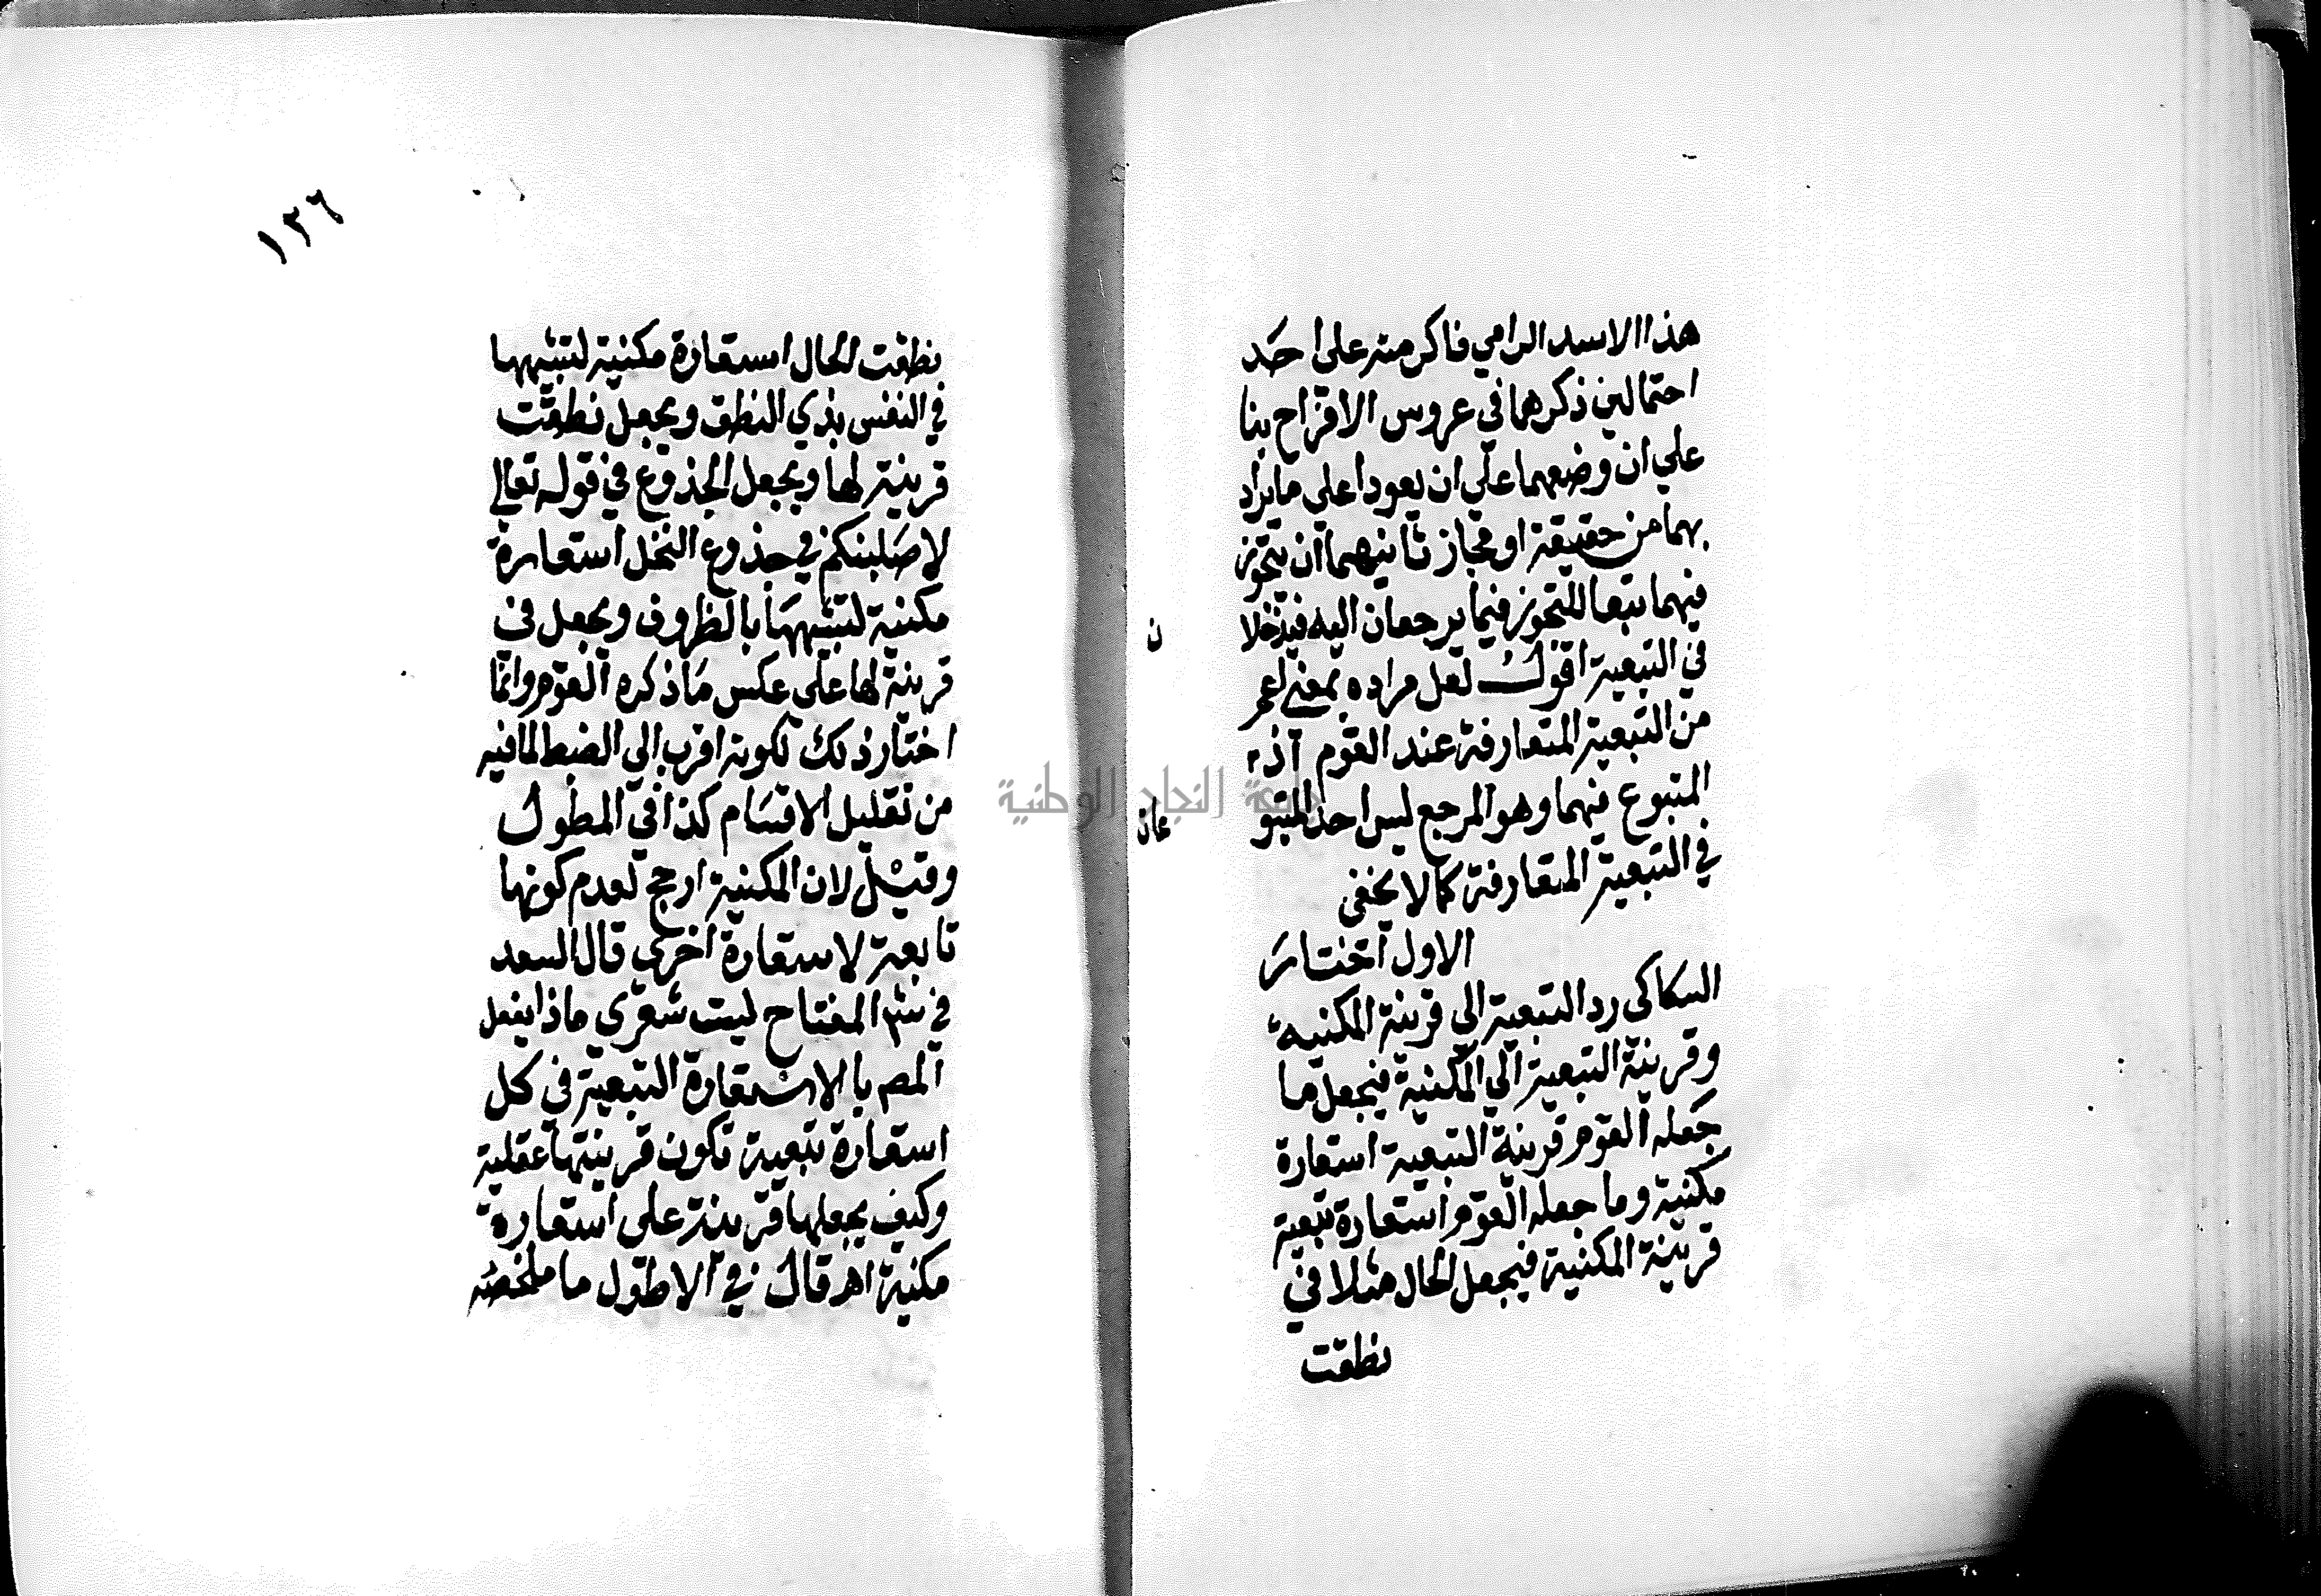 هذا الاسد الرامي فاكرمته على احد
احتمالين ذكرهما في عروس الافراح بنا
علي ان وضعهما علي ان يعودا على ما يراد
بهما من حقيقة او مجاز ثانيهما ان يتجوز
فيهما تبعا للتجوز فيما يرجعان اليه فيدخلا
ن
في التبعية اقول لعل مراده بمعني اعم
من التبعية المتعارفة عند القوم اذ
المتبوع فيهما وهو المرجع ليس احد المتبو
عان
في التبعية المتعارفة كما لا يخفى
الاول اختار
السكاكى رد التبعية الى قرينة المكنيه
وقرينة التبعية الي المكنية فيجعل ما
جعله القوم قرينة التبعية استعارة
مكنية وما جعله القوم استعارة تبعية
قرينة المكنية فيجعل الحال مثلا في
نطقت
١٢٦
نطقت الحال استعارة مكنية لتشبيهها
في النفس بذي النطق ويجعل نطقت
قرينة لها ويجعل الجذوع في قوله تعالي
لاصلبنكم في جذوع النخل استعارة
مكنية لتشبيهها بالظروف ويجعل في
قرينة لها على عكس ما ذكره القوم وانما
اختار ذلك لكونه اقرب الي الضبط لما فيه
من تقليل الاقسام كذا في المطول
وقيل لان المكنية ارجح لعدم كونها
تابعة لاستعارة اخرى قال السعد
في شرح المفتاح ليت شعري ماذا يفعل
المصم بالاستعارة التبعية في كل
استعارة تبعية تكون قرينتها عقلية
وكيف يجعلها قرينة على استعارة
مكنية اهـ قال في الاطول ما ملخصه
جامعة النجاح الوطنية